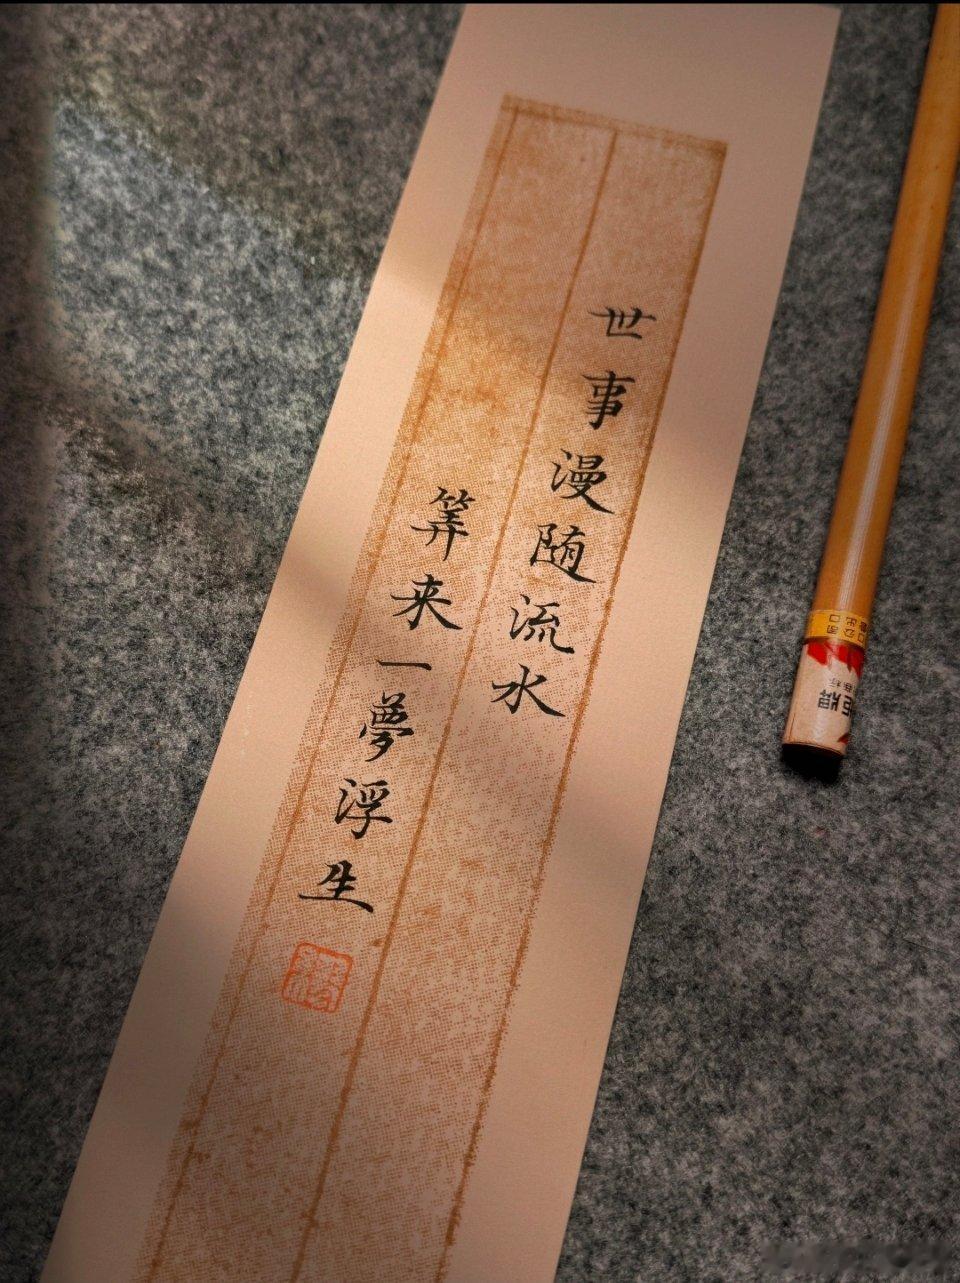 世事漫随流水
筭来一夢浮生
牌